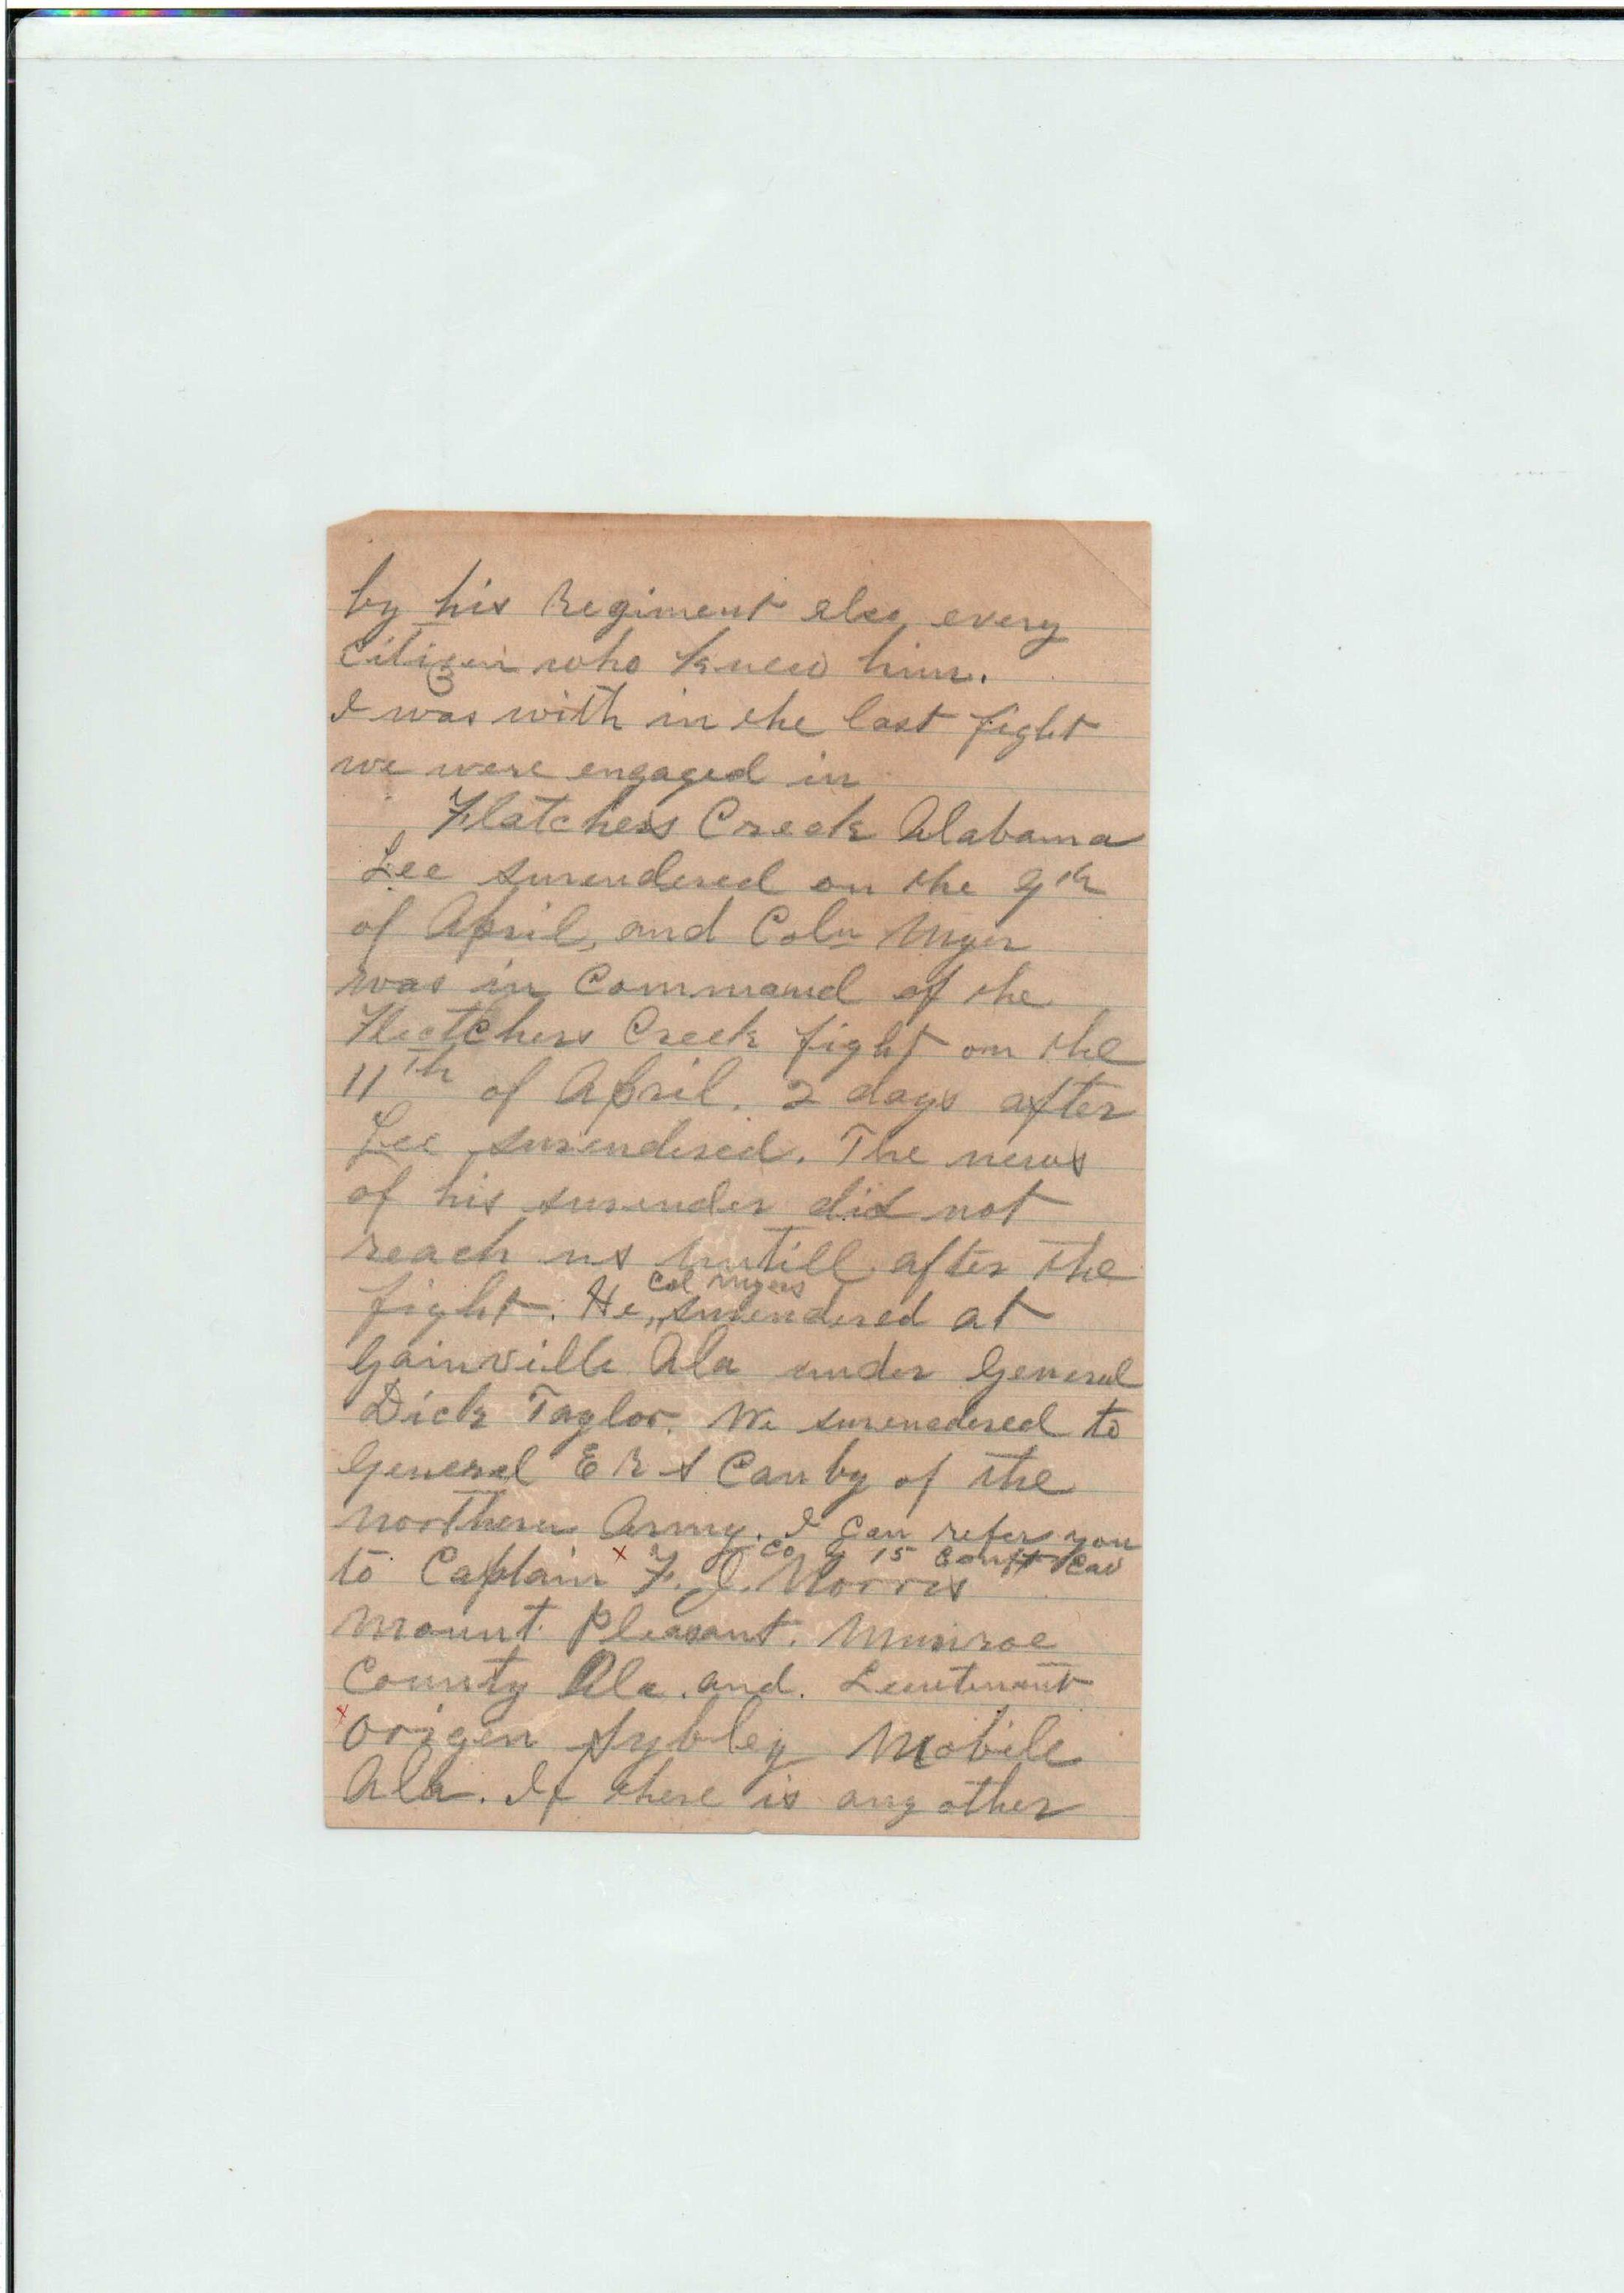 by his Regiment else every
Citizen who knew him.
I was with in the last fight
we were engaged in
Flatchers Creek Alabama
Lee surendered on the 9th
of April, and Coln Myer
was in Command of the
Fletchers Creek fight on the
11th of April. 2 days after
Lee surendered. The news
of his surender did not
reach us untill after the
Col Myers
fight. He, surendered at
Gainville Ala under General
Dick Taylor. We surenedered to
General E R S Canby of the
Northern Army. I Can refer you
Co 15 Conft Cav
to Captain x F. J. Norris
Mount Pleasant. Munroe
County Ala. and. Leutenant
x Origen Sybley Mobile
Ala. If there is any other